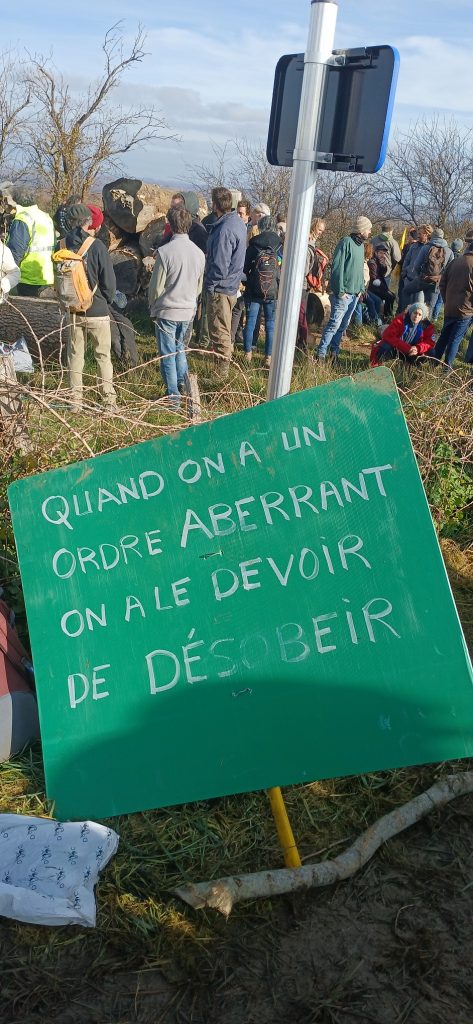 QUAND ON A UN
ORDRE ABERRANT
ON A LE DEVOIR
DE DÉSOBEIR